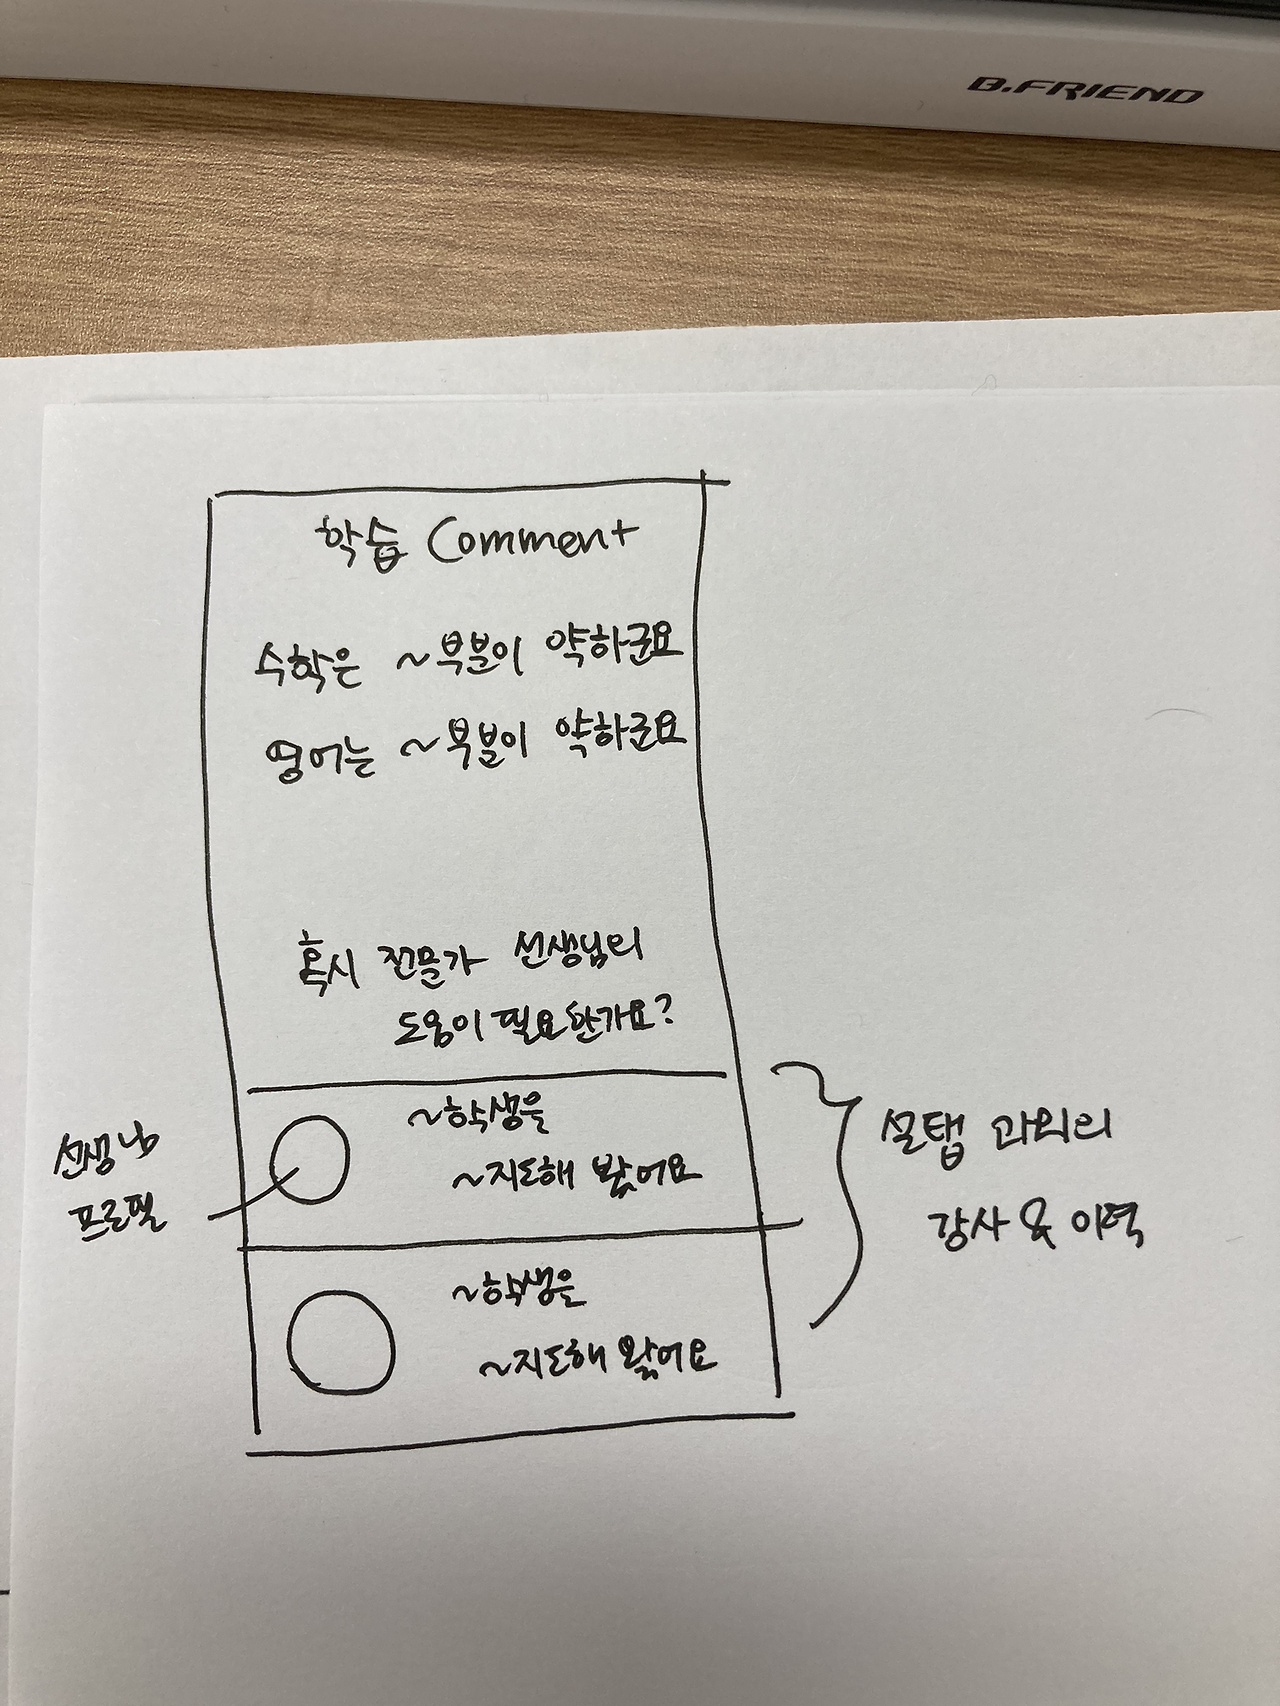 B.FRIEND
학습 Comment
수학은 ~부분이 약하군요
영어는 ~부분이 약하군요
혹시 전문가 선생님의
도움이 필요한가요?
~학생을
~지도해 봤어요
선생님
프로필
~학생을
~지도해 왔어요
설탭 과외의
강사 & 이력